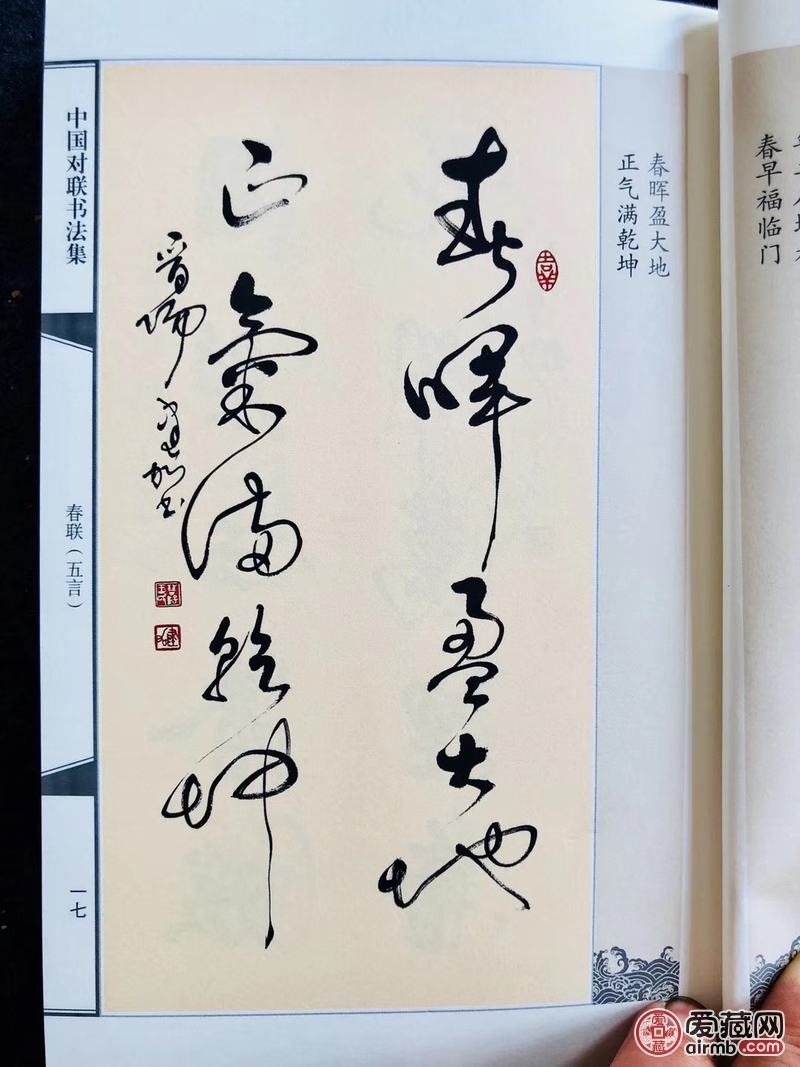 春早福临门
春晖盈大地
正气满乾坤
春晖盈大地
正氣满乾坤
晋阳
书
中国对联书法集
春联（五言）
一七
爱藏网
airmb.com